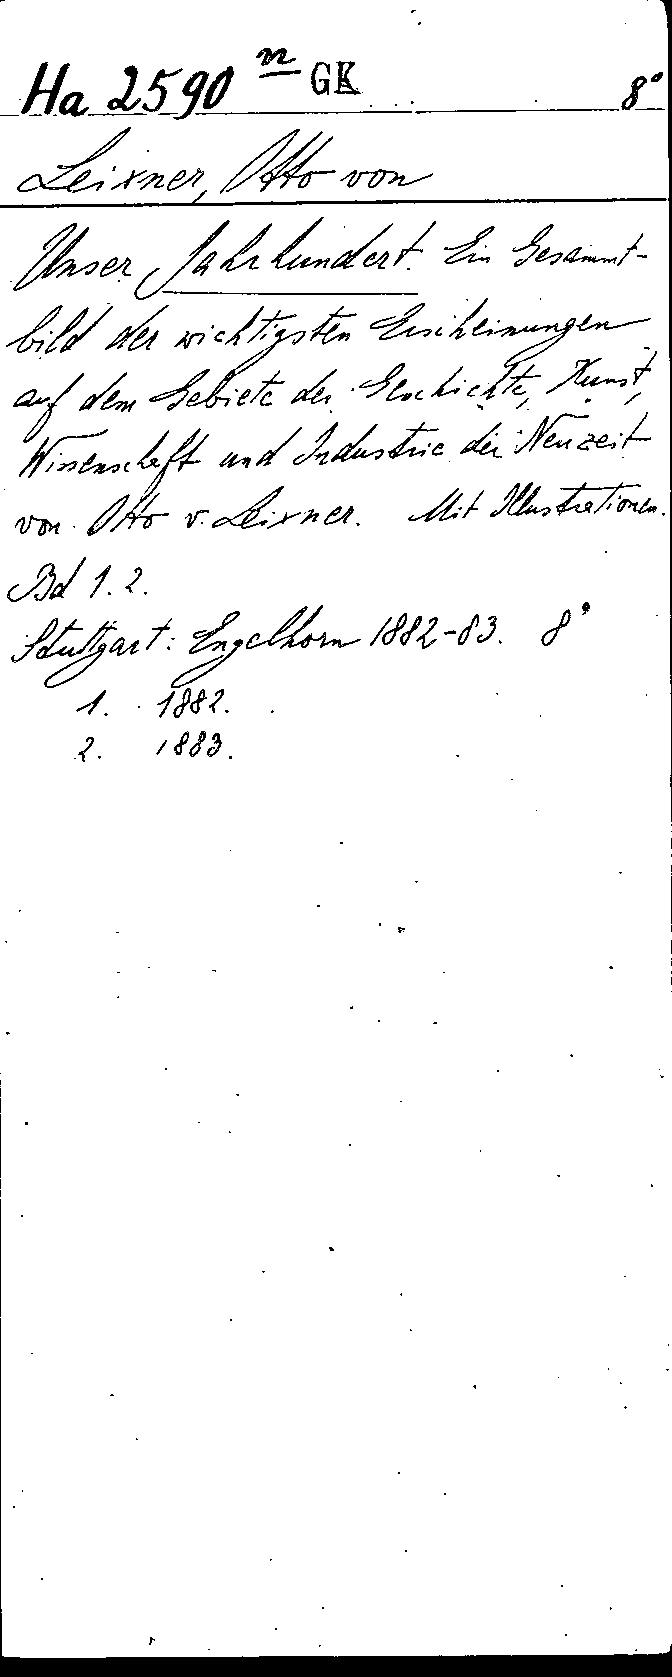 Ha 2590 n GK 8°
Leixner, Otto von
Unser Jahrhundert. Ein Gesammt-
bild der wichtigsten Erscheinungen
auf dem Gebiete der Geschichte, Kunst,
Wissenschaft und Industrie der Neuzeit
von Otto v. Leixner. Mit Illustrationen.
Bd 1. 2.
Stuttgart: Engelhorn 1882-83. 8°
1. 1882.
2. 1883.